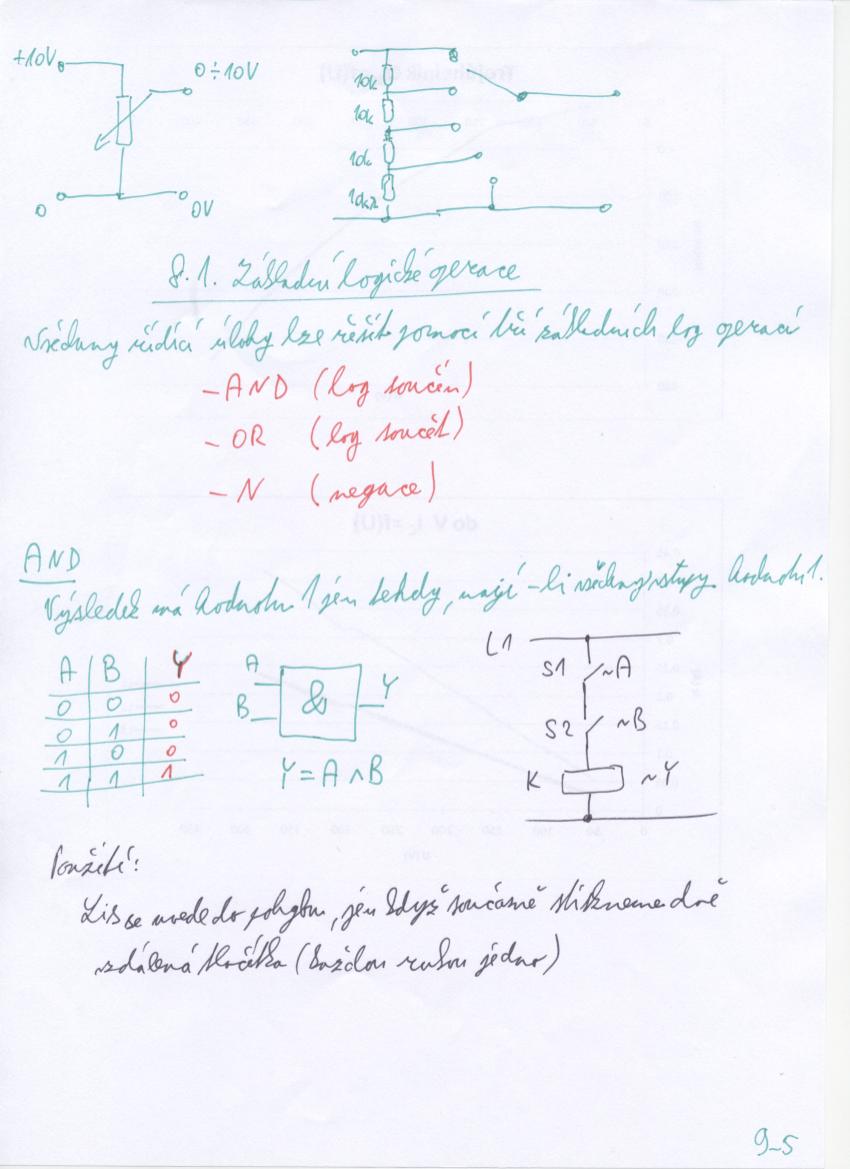 +10V
0÷10V
0
0V
10k
10k
10k
10kΩ
8.1. Základní logické operace
Všechny řídící úlohy lze řešit pomocí tří základních log operací
- AND (log součin)
- OR (log součet)
- N (negace)
AND
Výsledek má hodnotu 1 jen tehdy, mají-li všechny vstupy hodnotu 1.
A B Y
0 0 0
0 1 0
1 0 0
1 1 1
A
B
&
Y
Y = A ∧ B
L1
S1 ~A
S2 ~B
K ~Y
Použití:
Lis se uvede do pohybu, jen když současně stiskneme dvě
vzdálená tlačítka (každou rukou jedno)
9-5